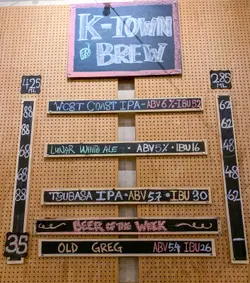 K-TOWN
BREW
425
ML
285
ML
WEST COAST IPA-ABV 6%-IBU 52
LUNAR WHITE ALE · ABV 5% · IBU 16
TSUBASA IPA · ABV 5.7 · IBU 30
BEER OF THE WEEK
OLD GREG ABV 5.4 IBU 26
88
88
68
68
88
35
62
62
48
48
62